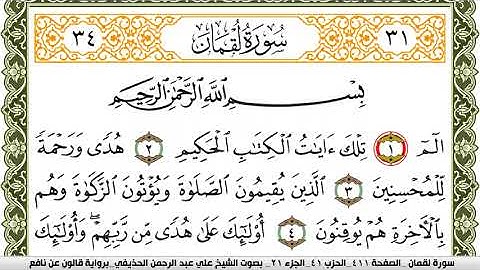 ٣٤ سُورَةُ لُقْمَانَ ٣١
بِسْمِ اللَّهِ الرَّحْمَٰنِ الرَّحِيمِ
أَلَٓمِّٓ ١ تِلْكَ ءَايَٰتُ اُ۬لْكِتَٰبِ اِ۬لْحَكِيمِ ٢ هُدىٗ وَرَحْمَةٗ
لِّلْمُحْسِنِينَ ٣ اَ۬لذِينَ يُقِيمُونَ اَ۬لصَّلَوٰةَ وَيُؤْتُونَ اَ۬لزَّكَوٰةَ وَهُم
بِالْأٓخِرَةِ هُمْ يُوقِنُونَ ٤ أُوْلَٰٓئِكَ عَلَىٰ هُدىٗ مِّن رَّبِّهِمْ وَأُوْلَٰٓئِكَ
سورة لقمان _ الصفحة ٤١١ _ الحزب ٤١ _ الجزء ٢١ _ بصوت الشيخ علي عبد الرحمن الحذيفي _ برواية قالون عن نافع